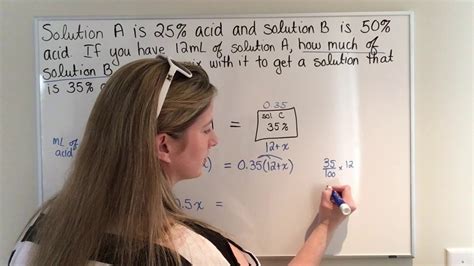 Solution A is 25% acid and solution B is 50%
acid. If you have 12mL of solution A, how much of
solution B with it to get a solution that
is 35%
0.35
sol C
35%
=
12+x
mL of
acid
) = 0.35(12+x)
35/100 x 12
0.5x =